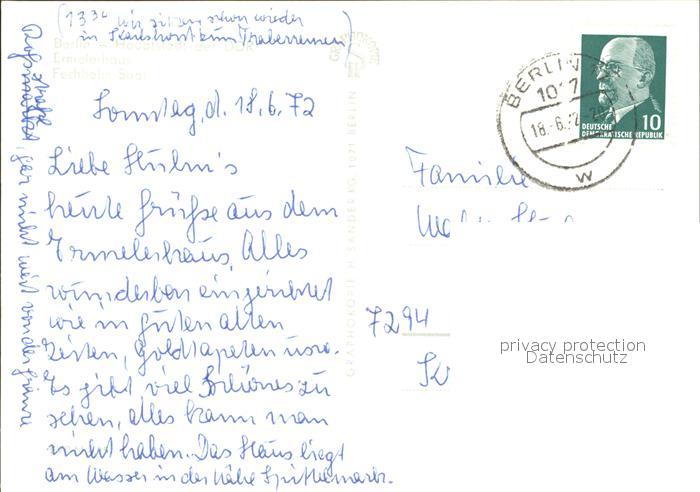 (13³⁰ wir sitzen schon wieder
in Karlshorst zum Trabrennen)
Berlin - Hauptstadt der DDR
Ermelerhaus
Fechhelm Saal
Sonntag, d. 18.6.72
Liebe
heute Grüße aus dem
Ermelerhaus. Alles
wunderbar eingerichtet
wie in guten alten
Zeiten, Goldtapeten usw.
Es gibt viel Schönes zu
sehen, alles kann man
nicht haben. Das Haus liegt
am Wasser in der Nähe Spittelmarkt.
gar nicht weit von der Grenze
GRAPHOKOPIE H. SANDER KG, 1071 BERLIN
BERLIN
1017
18.-6.72
W
DEUTSCHE
DEMOKRATISCHE REPUBLIK
10
Familie
7294
privacy protection
Datenschutz